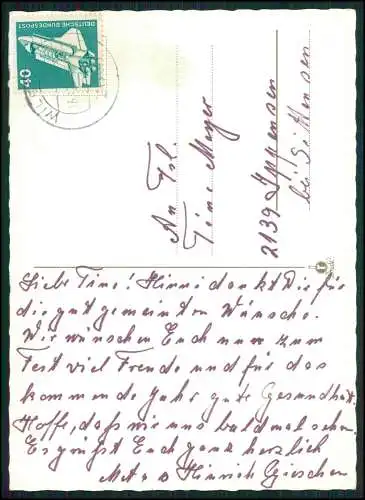 DEUTSCHE BUNDESPOST
40
An Frl.
Tine Meyer
2139 Ippensen
bei Sittensen
Liebe Tine! Hinni dankt Die für
die gut gemeinten Wünsche.
Wir wünschen Euch nun zum
Fest viel Freude und für das
kommende Jahr gute Gesundheit.
Hoffe, daß wir uns bald mal sehen.
Es grüßt Euch ganz herzlich
Meta u Hinrich Gieschen